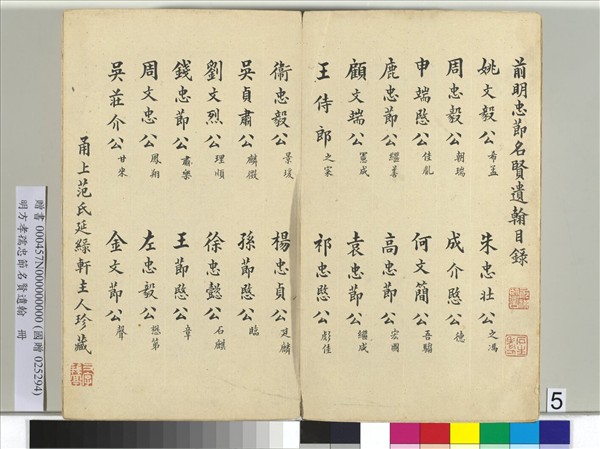 前明忠節名賢遺翰目錄
姚文毅公 希孟 朱忠壯公 之馮
周忠毅公 朝瑞 成介愍公 德
申端愍公 佳胤 何文簡公 吾騶
鹿忠節公 繼善 高忠節公 宏圖
顧文端公 憲成 袁忠節公 繼咸
王侍郎 之寀 祁忠愍公 彪佳
衛忠毅公 景瑗 楊忠貞公 廷麟
吳貞肅公 麟徵 孫節愍公 臨
劉文烈公 理順 徐忠懿公 石麒
錢忠節公 肅樂 王節愍公 章
周文忠公 鳳翔 左忠毅公 懋第
吳莊介公 甘來 金文節公 聲
甬上范氏延綠軒主人珍藏
贈書 000457N000000000 (國贈 025294)
明方孝孺忠節名賢遺翰 冊
5